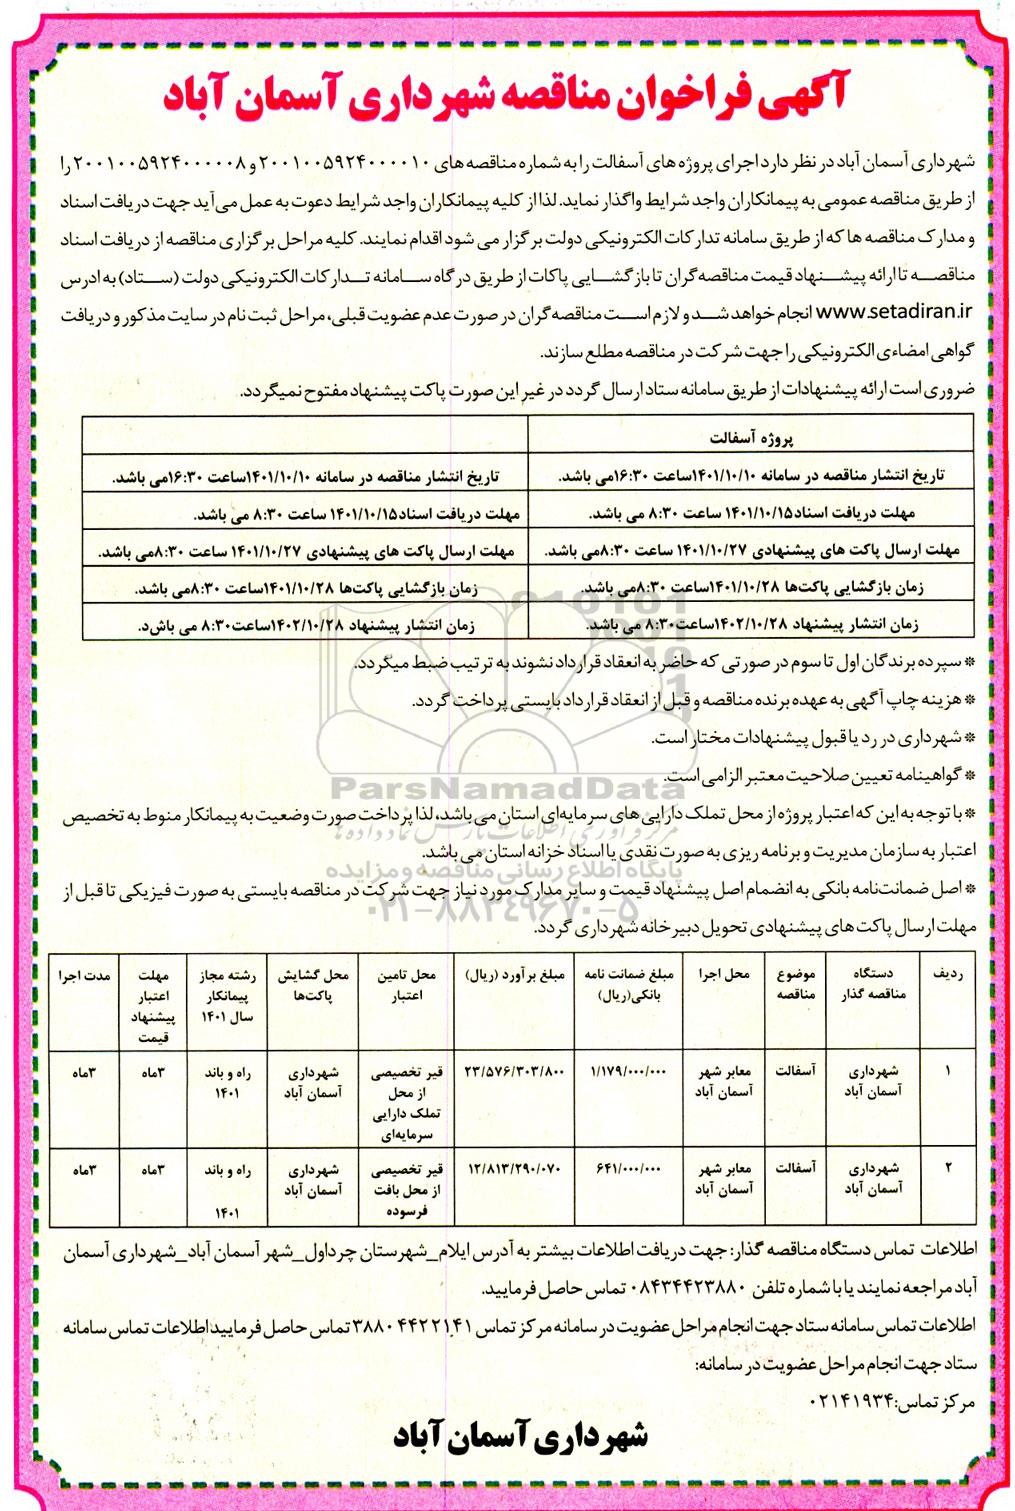 آگهی فراخوان مناقصه شهرداری آسمان آباد
شهرداری آسمان آباد در نظر دارد اجرای پروژه های آسفالت را به شماره مناقصه های ۲۰۰۱۰۰۵۹۲۴۰۰۰۰۱۰ و ۲۰۰۱۰۰۵۹۲۴۰۰۰۰۰۸ را
از طریق مناقصه عمومی به پیمانکاران واجد شرایط واگذار نماید. لذا از کلیه پیمانکاران واجد شرایط دعوت به عمل می آید جهت دریافت اسناد
و مدارک مناقصه ها که از طریق سامانه تدارکات الکترونیکی دولت برگزار می شود اقدام نمایند. کلیه مراحل برگزاری مناقصه از دریافت اسناد
مناقصه تا ارائه پیشنهاد قیمت مناقصه گران تا بازگشایی پاکات از طریق درگاه سامانه تدارکات الکترونیکی دولت (ستاد) به ادرس
www.setadiran.ir انجام خواهد شد و لازم است مناقصه گران در صورت عدم عضویت قبلی، مراحل ثبت نام در سایت مذکور و دریافت
گواهی امضاءی الکترونیکی را جهت شرکت در مناقصه مطلع سازند.
ضروری است ارائه پیشنهادات از طریق سامانه ستاد ارسال گردد در غیر این صورت پاکت پیشنهاد مفتوح نمیگردد.
پروژه آسفالت
تاریخ انتشار مناقصه در سامانه ۱۴۰۱/۱۰/۱۰ساعت ۱۶:۳۰می باشد. تاریخ انتشار مناقصه در سامانه ۱۴۰۱/۱۰/۱۰ساعت ۱۶:۳۰می باشد.
مهلت دریافت اسناد۱۴۰۱/۱۰/۱۵ ساعت ۸:۳۰ می باشد. مهلت دریافت اسناد۱۴۰۱/۱۰/۱۵ ساعت ۸:۳۰ می باشد.
مهلت ارسال پاکت های پیشنهادی ۱۴۰۱/۱۰/۲۷ ساعت ۸:۳۰می باشد. مهلت ارسال پاکت های پیشنهادی ۱۴۰۱/۱۰/۲۷ ساعت ۸:۳۰می باشد.
زمان بازگشایی پاکت‌ها ۱۴۰۱/۱۰/۲۸ساعت ۸:۳۰می باشد. زمان بازگشایی پاکت‌ها ۱۴۰۱/۱۰/۲۸ساعت ۸:۳۰می باشد.
زمان انتشار پیشنهاد ۱۴۰۲/۱۰/۲۸ساعت۸:۳۰ می باشد. زمان انتشار پیشنهاد ۱۴۰۲/۱۰/۲۸ساعت۸:۳۰ می باش‌د.
* سپرده برندگان اول تا سوم در صورتی که حاضر به انعقاد قرارداد نشوند به ترتیب ضبط میگردد.
* هزینه چاپ آگهی به عهده برنده مناقصه و قبل از انعقاد قرارداد بایستی پرداخت گردد.
* شهرداری در رد یا قبول پیشنهادات مختار است.
* گواهینامه تعیین صلاحیت معتبر الزامی است.
ParsNamadData
* با توجه به این که اعتبار پروژه از محل تملک دارایی های سرمایه ای استان می باشد، لذا پرداخت صورت وضعیت به پیمانکار منوط به تخصیص
اعتبار به سازمان مدیریت و برنامه ریزی به صورت نقدی یا اسناد خزانه استان می باشد.
پایگاه اطلاع رسانی مناقصه و مزایده
* اصل ضمانت‌نامه بانکی به انضمام اصل پیشنهاد قیمت و سایر مدارک مورد نیاز جهت شرکت در مناقصه بایستی به صورت فیزیکی تا قبل از
۰۲۱-۸۸۳۴۹۶۷۰-۵
مهلت ارسال پاکت های پیشنهادی تحویل دبیرخانه شهرداری گردد.
ردیف دستگاه مناقصه گذار موضوع مناقصه محل اجرا مبلغ ضمانت نامه بانکی(ریال) مبلغ برآورد (ریال) محل تامین اعتبار محل گشایش پاکت‌ها رشته مجاز پیمانکار سال ۱۴۰۱ مهلت اعتبار پیشنهاد قیمت مدت اجرا
۱ شهرداری آسمان آباد آسفالت معابر شهر آسمان آباد ۱/۱۷۹/۰۰۰/۰۰۰ ۲۳/۵۷۶/۳۰۳/۸۰۰ قیر تخصیصی از محل تملک دارایی سرمایه‌ای شهرداری آسمان آباد راه و باند ۱۴۰۱ ۳ماه ۳ماه
۲ شهرداری آسمان آباد آسفالت معابر شهر آسمان آباد ۶۴۱/۰۰۰/۰۰۰ ۱۲/۸۱۳/۲۹۰/۰۷۰ قیر تخصیصی از محل بافت فرسوده شهرداری آسمان آباد راه و باند ۱۴۰۱ ۳ماه ۳ماه
اطلاعات تماس دستگاه مناقصه گذار: جهت دریافت اطلاعات بیشتر به آدرس ایلام_شهرستان چرداول_شهر آسمان آباد_شهرداری آسمان
آباد مراجعه نمایند یا با شماره تلفن ۰۸۴۳۴۴۲۳۸۸۰ تماس حاصل فرمایید.
اطلاعات تماس سامانه ستاد جهت انجام مراحل عضویت در سامانه مرکز تماس ۳۸۸۰۴۴۲۲۱۴۱ تماس حاصل فرمایید اطلاعات تماس سامانه
ستاد جهت انجام مراحل عضویت در سامانه:
مرکز تماس:۰۲۱۴۱۹۳۴
شهرداری آسمان آباد